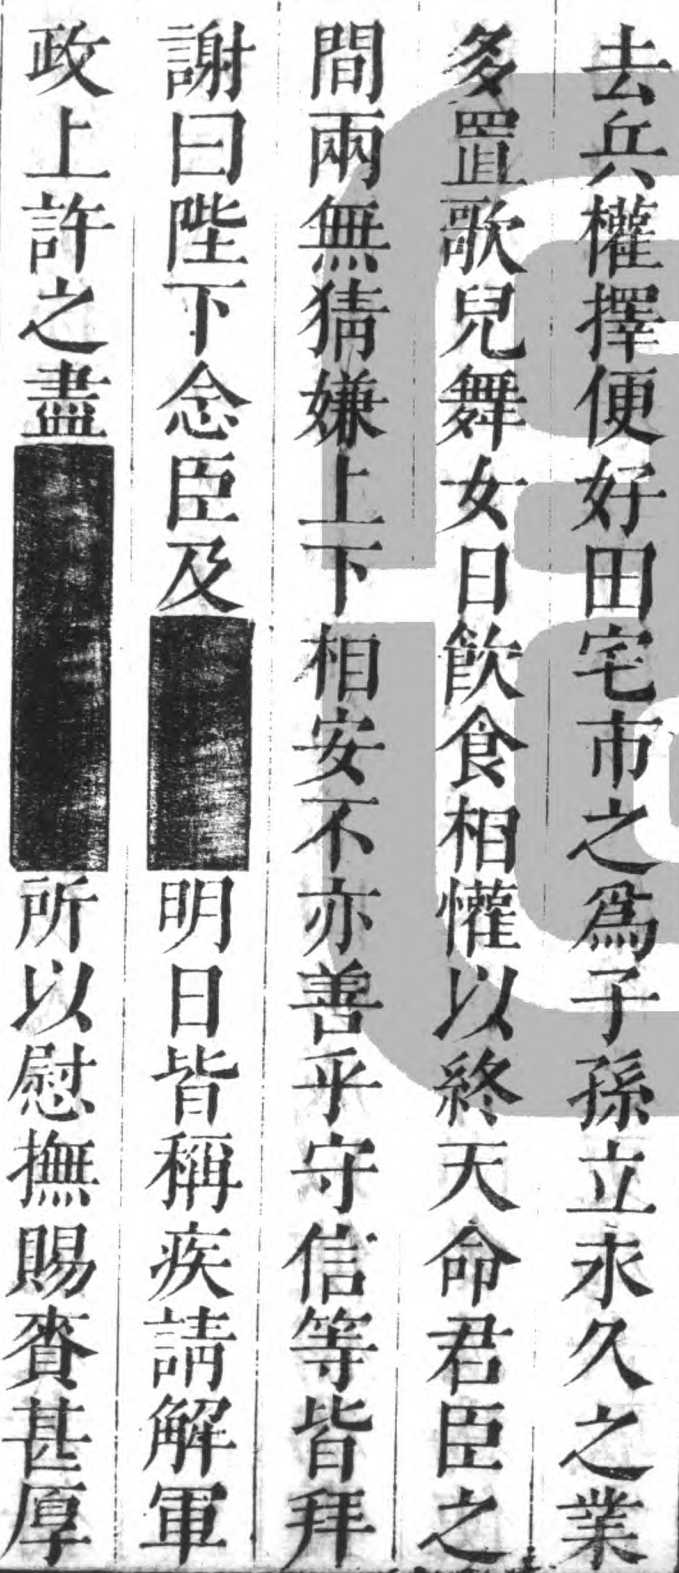 去兵權擇便好田宅市之爲子孫立永久之業
多置歌兒舞女日飲食相懽以終天命君臣之
間兩無猜嫌上下相安不亦善乎守信等皆拜
謝曰陛下念臣及明日皆稱疾請解軍
政上許之盡所以慰撫賜賚甚厚